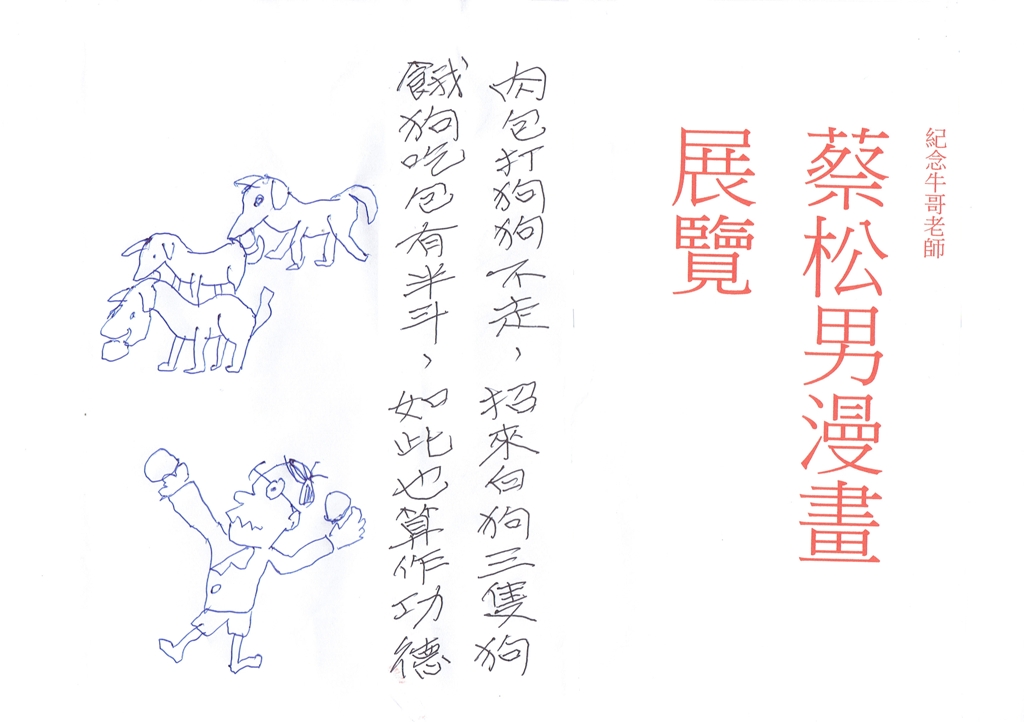 紀念牛哥老師
蔡松男漫畫
展覽
肉包打狗狗不走，招來白狗三隻狗
餓狗吃包有半斗，如此也算作功德